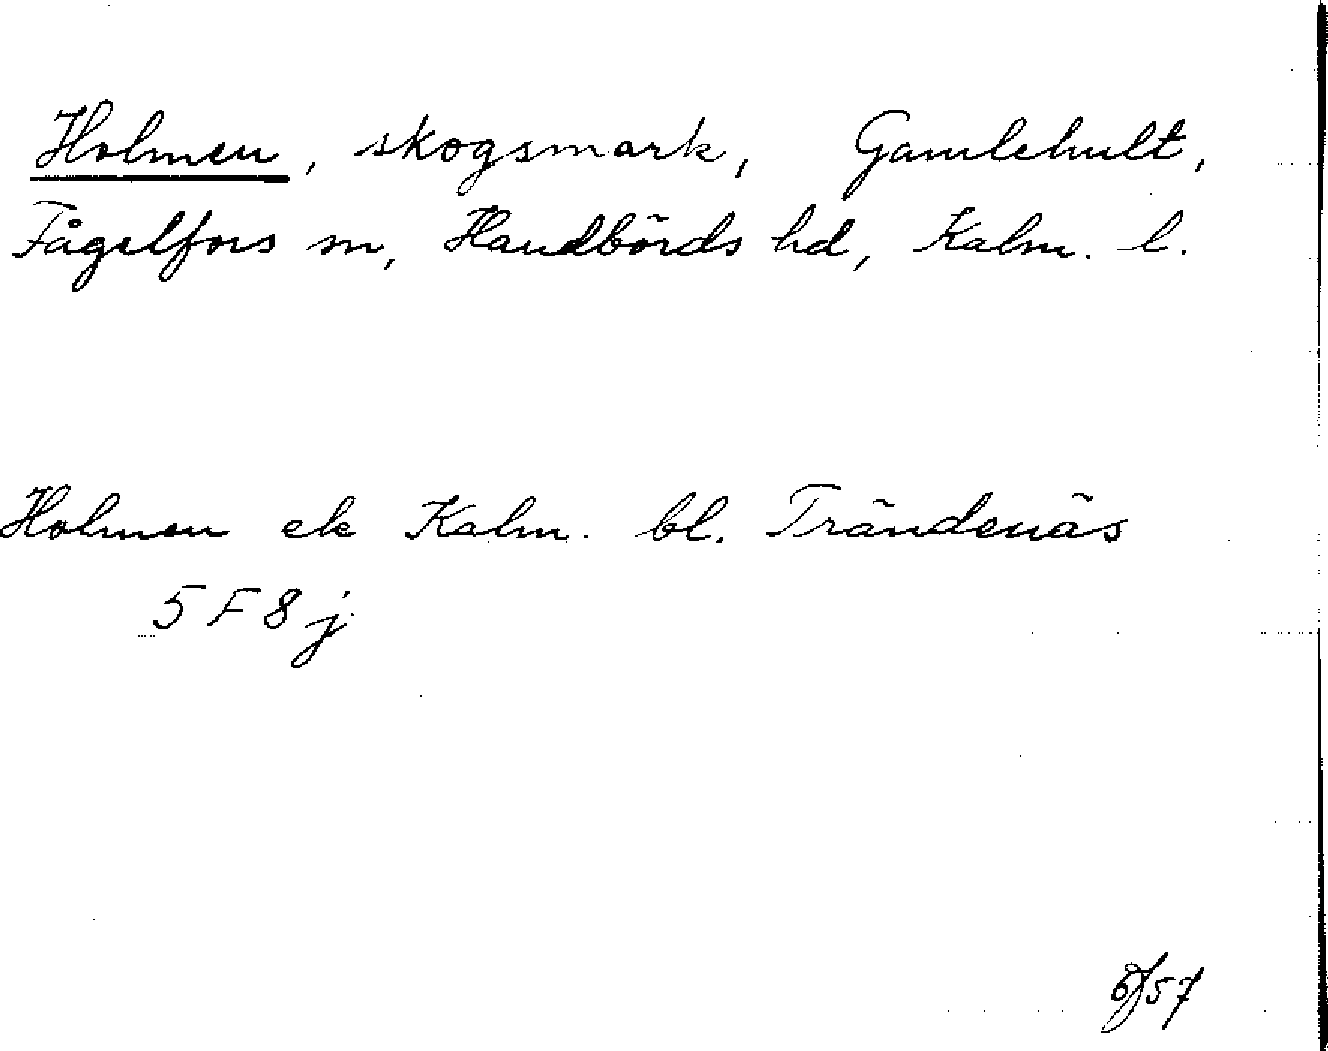 Holmen, skogsmark, Gamlehult,
Fågelfors sn, Handbörds hd, Kalm. l.
Holmen ek Kalm. bl. Trändenäs
5 F 8 j
57